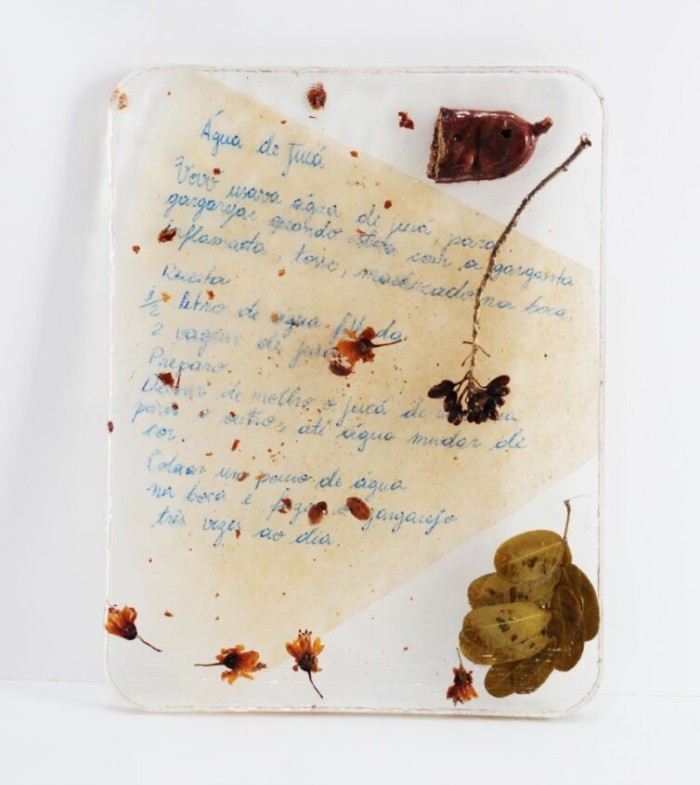 Água de jucá
Vovó usava água de jucá para
gargarejar quando estava com a garganta
inflamada, tosse, machucado na boca.
Receita
½ litro de água filtrada
2 vagens de jucá
Preparo
Deixar de molho o jucá de um dia
para o outro, até água mudar de
cor.
Colocar um pouco de água
na boca e fazer o gargarejo
três vezes ao dia.